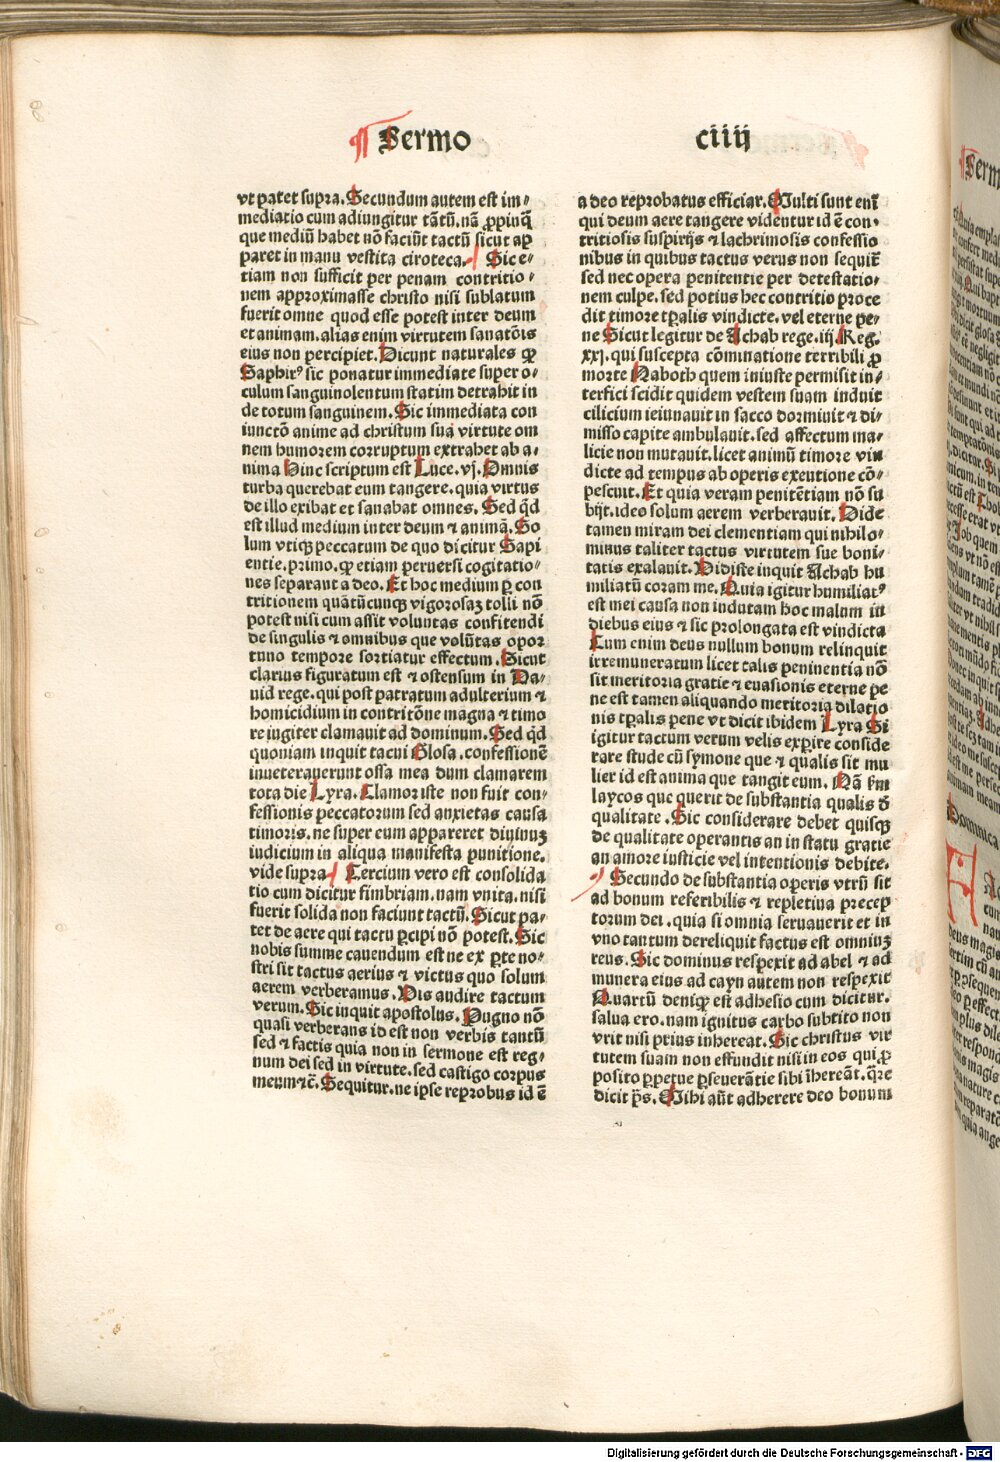 Sermo ciiij
vt patet supra. Secundum autem est im⸗
mediatio cum adiungitur tātū. nā ꝓpinq̄
que mediū habet nō faciūt tactū sicut ap
paret in manu vestita ciroteca. Sic e⸗
tiam non sufficit per penam contritio⸗
nem approximasse christo nisi sublatum
fuerit omne quod esse potest inter deum
et animam. alias enim virtutem sanatōis
eius non percipiet. Dicunt naturales ꝙ
Saphirꝰ sic ponatur immediate super o⸗
culum sanguinolentum statim detrahit in
de totum sanguinem. Sic immediata con
iunctō anime ad christum sua virtute om
nem humorem corruptum extrahet ab a⸗
nima Hinc scriptum est Luce. vj. Omnis
turba querebat eum tangere. quia virtus
de illo exibat et sanabat omnes. Sed qd̄
est illud medium inter deum et animā. So
lum vtiqꝫ peccatum de quo dicitur Sapi
entie. primo. ꝙ etiam peruersi cogitatio⸗
nes separant a deo. Et hoc medium ꝑ con
tritionem quātūcunqꝫ vigorosaꝫ tolli nō
potest nisi cum assit voluntas confitendi
de singulis ⁊ omnibus que volūtas opor
tuno tempore sortiatur effectum. Sicut
clarius figuratum est ⁊ ostensum in Da⸗
uid rege. qui post patratum adulterium ⁊
homicidium in contritōne magna ⁊ timo
re iugiter clamauit ad dominum. Sed qd̄
quoniam inquit tacui Glosa. confessionē
inueterauerunt ossa mea dum clamarem
tota die Lyra. Clamor iste non fuit con⸗
fessionis peccatorum sed anxietas causa
timoris. ne super eum appareret diuinuꝫ
iudicium in aliqua manifesta punitione.
vide supra Tercium vero est consolida
tio cum dicitur fimbriam. nam vnita. nisi
fuerit solida non faciunt tactū. Sicut pa⸗
tet de aere qui tactu ꝑcipi nō potest. Sic
nobis summe cauendum est ne ex ꝑte no⸗
stri sit tactus aerius ⁊ victus quo solum
aerem verberamus. Vis audire tactum
verum. Sic inquit apostolus. Pugno nō
quasi verberans id est non verbis tantū
sed ⁊ factis quia non in sermone est reg⸗
num dei sed in virtute. sed castigo corpus
meum ⁊c̄. Sequitur. ne ipse reprobus id ē
a deo reprobatus efficiar. Multi sunt eni᷒
qui deum aere tangere videntur id ē con⸗
tritiosis suspirijs ⁊ lachrimosis confessio
nibus in quibus tactus verus non sequit᷑
sed nec opera penitentie per detestatio⸗
nem culpe. sed potius hec contritio proce
dit timore tꝑalis vindicte. vel eterne pe⸗
ne Sicut legitur de Achab rege. iij. Reg.
xxj. qui suscepta cōminatione terribili ꝓ
morte Naboth quem iniuste permisit in⸗
terfici scidit quidem vestem suam induit
cilicium ieiunauit in sacco dormiuit ⁊ di⸗
misso capite ambulauit. sed affectum ma⸗
licie non mutauit. licet animū timore vin
dicte ad tempus ab operis exeutione cō⸗
pescuit. Et quia veram penitētiam nō su
bijt. ideo solum aerem verberauit. Vide
tamen miram dei clementiam qui nihilo⸗
minus taliter tactus virtutem sue boni⸗
tatis exalauit. Vidiste inquit Achab hu
miliatū coram me. Quia igitur humiliatꝰ
est mei causa non indutam hoc malum in
diebus eius ⁊ sic prolongata est vindicta
Cum enim deus nullum bonum relinquit
irremuneratum licet talis peninentia nō
sit meritoria gratie ⁊ euasionis eterne pe
ne est tamen aliquando meritoria dilatio
nis tꝑalis pene vt dicit ibidem Lyra Si
igitur tactum verum velis expire conside
rare stude cū symone que ⁊ qualis sit mu
lier id est anima que tangit eum. Nā ẜm
laycos que querit de substantia qualis ꝺ̄
qualitate. Sic considerare debet quisqꝫ
de qualitate operantis an in statu gratie
an amore iusticie vel intentionis debite.
Secundo de substantia operis vtrū sit
ad bonum referibilis ⁊ repletiua precep
torum dei. quia si omnia seruauerit et in
vno tantum dereliquit factus est omniuꝫ
reus. Sic dominus respexit ad abel ⁊ ad
munera eius ad cayn autem non respexit
Quartū deniqꝫ est adhesio cum dicitur.
salua ero. nam ignitus carbo subtito non
vrit nisi prius inhereat. Sic christus vir
tutem suam non effundit nisi in eos qui ꝓ
posito ꝑpetue ꝑseuerātie sibi īhereāt. q̄re
dicit ps̄. Mihi aūt adherere deo bonum
Digitalisierung gefördert durch die Deutsche Forschungsgemeinschaft - DFG